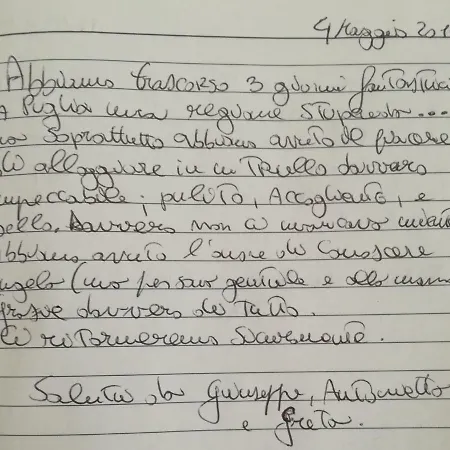 4 Maggio 201
Abbiamo trascorso 3 giorni fantastici
Puglia una regione stupenda...
Soprattutto abbiamo avuto il piacere
di alloggiare in un Trullo davvero
impeccabile; pulito, Accogliente, e
bello. Davvero non ci mancava niente
abbiamo avuto l'onore di conoscere
(una persona gentile e alla mano
grazie davvero di Tutto.
Ci ritorneremo sicuramente.
Saluti da Giuseppe, Antonietta
e Greta.